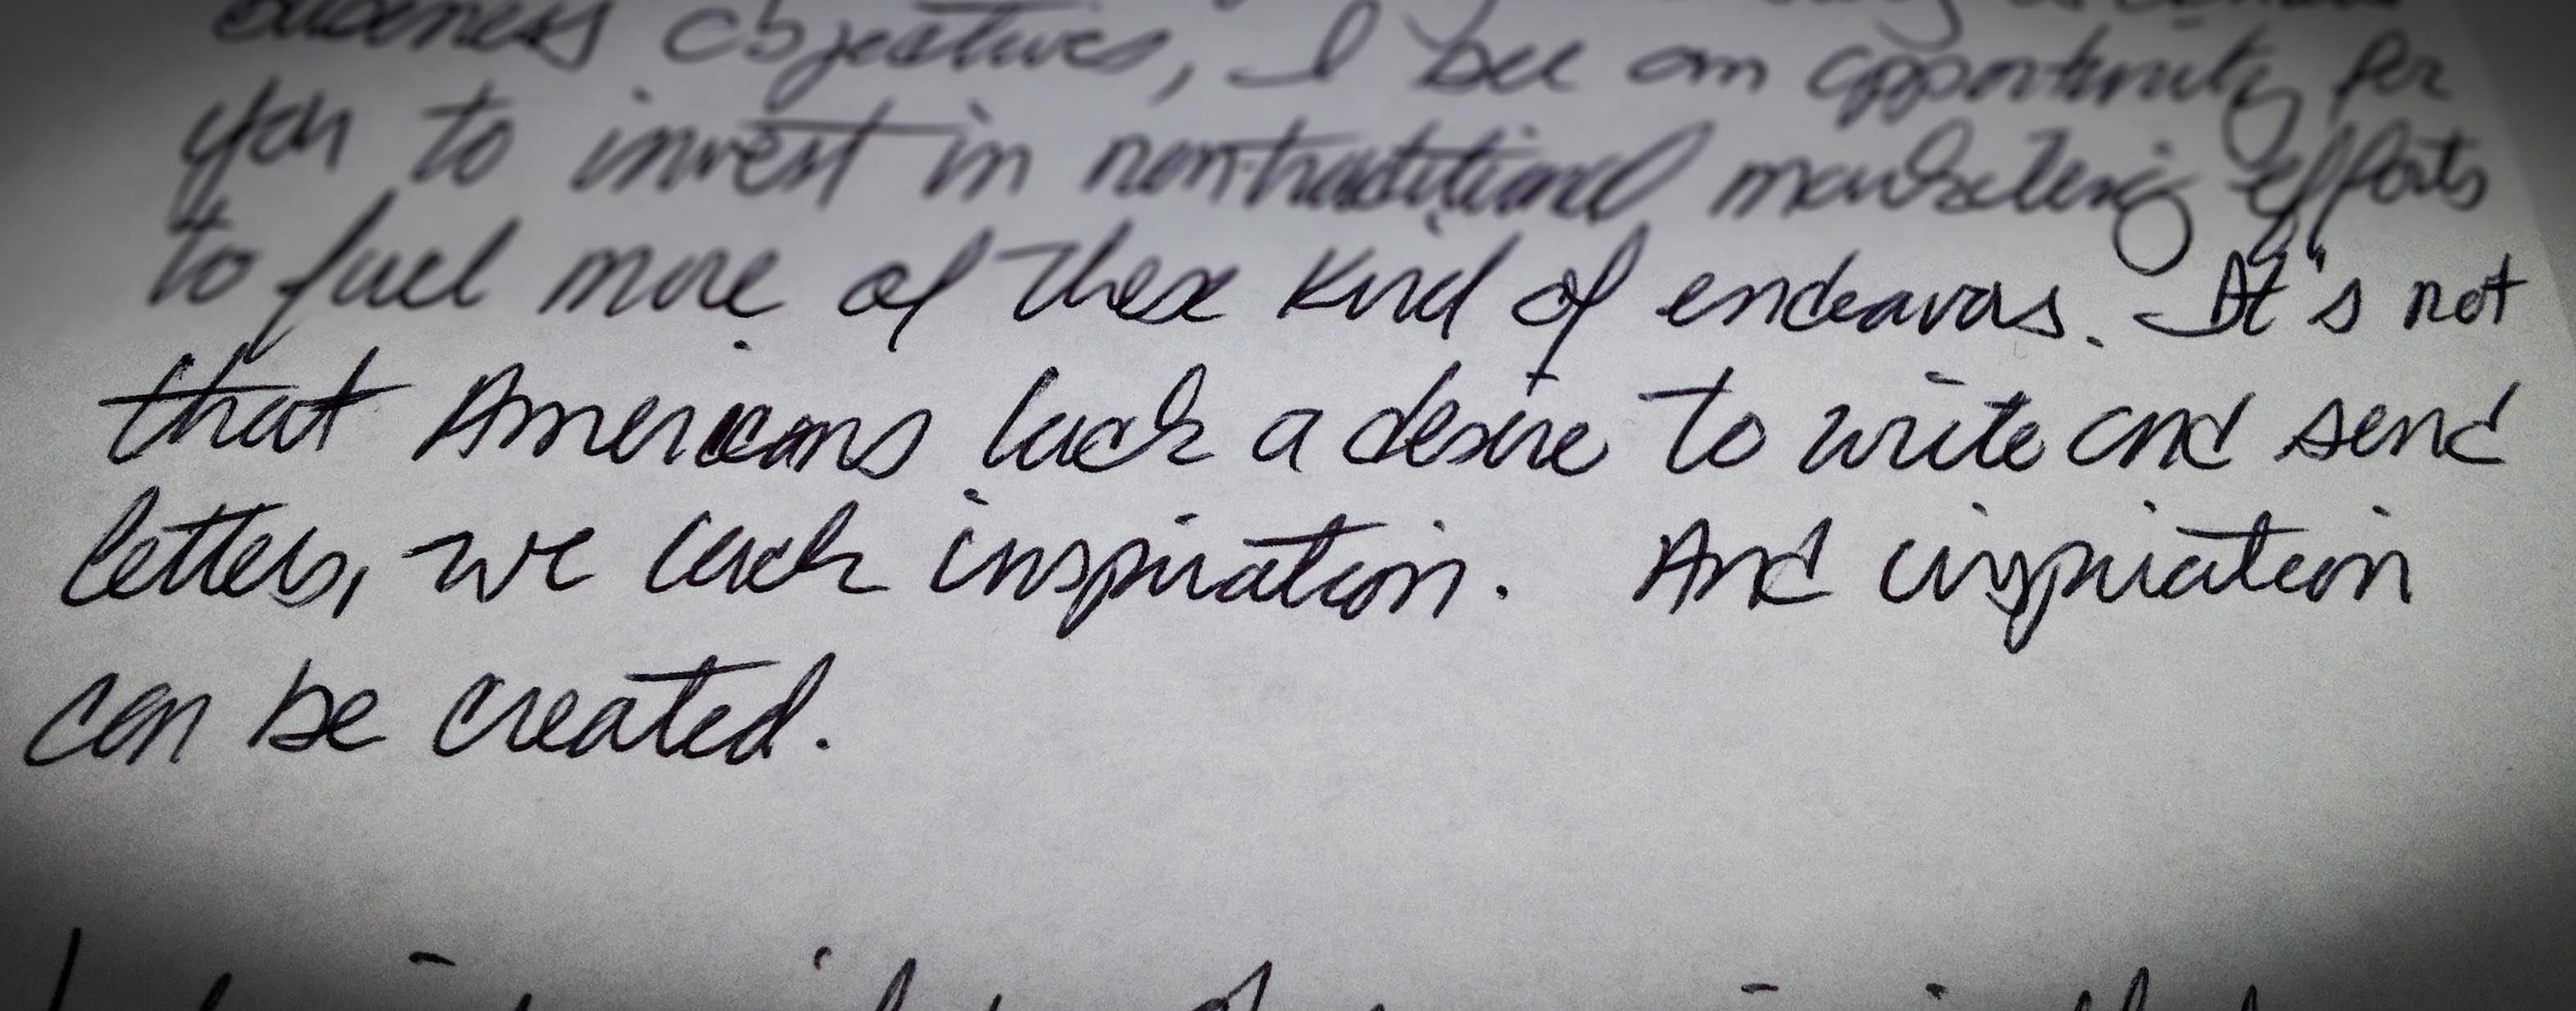 business objectives, I see an opportunity for
you to invest in nontraditional marketing efforts
to fuel more of these kind of endeavors. It's not
that Americans lack a desire to write and send
letters, we lack inspiration. And inspiration
can be created.